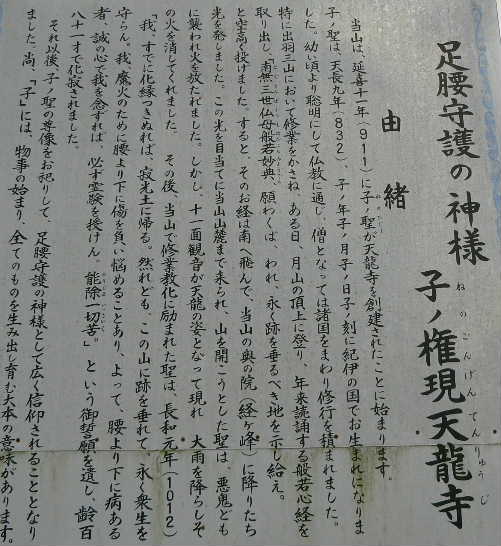 足腰守護の神様
子ノ権現天龍寺
ねのごんげんてんりゅうじ
由緒
当山は、延喜十一年(911)に子ノ聖が天龍寺を創建されたことに始まります。
子ノ聖は、天長九年(832)、子ノ年子ノ月子ノ日子ノ刻に紀伊の国でお生まれになりま
した。幼い頃より聡明にして仏教に通じ、僧となっては諸国をまわり修行を積まれました。
特に出羽三山において修業をかさね、ある日、月山の頂上に登り、年来流誦する般若心経を
取り出し、「南無三世仏母般若妙典、願わくは、われ、永く跡を垂るべき地を示し給え。
と空高く投げました。すると、そのお経は南へ飛んで、当山の奥の院(経ヶ峰)に降りたち
光を発しました。この光を目当てに当山山麓まで来られ、山を開こうとした聖は、悪鬼ども
に襲われ火を放たれました。しかし、十一面観音が天龍の姿となって現れ 大雨を降らしそ
の火を消してくれました。 その後、当山で修業教化に励まれた聖は、長和元年(1012)
「我、すでに化縁つきぬれば、寂光土に帰る。然れども、この山に跡を垂れて、永く衆生を
守らん。我、魔火のために腰より下に傷を負い悩めることあり、よって、腰より下に病ある
者、誠の心で我を念ずれば、必ず霊験を授けん。能除一切苦。」という御誓願を遺し、齢百
八十一才で化寂されました。
それ以後、子ノ聖の尊像をお祀りして、足腰守護の神様として広く信仰されることとなり
ました。尚、「子」には、物事の始まり、全てのものを生み出し育む大本の意味があります。